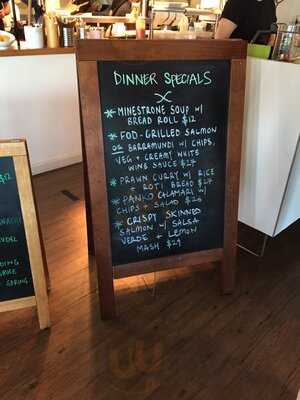 DINNER SPECIALS
* MINESTRONE SOUP w/
BREAD ROLL $12
* FOD-GRILLED SALMON
OR BARRAMUNDI w/ CHIPS,
VEG + CREAMY WHITE
WINE SAUCE $27
* PRAWN CURRY w/ RICE
+ ROTI BREAD $27
* PANKO CALAMARI w/
CHIPS + SALAD $26
* CRISPY SKINNED
SALMON w/ SALSA
VERDE + LEMON
MASH $29